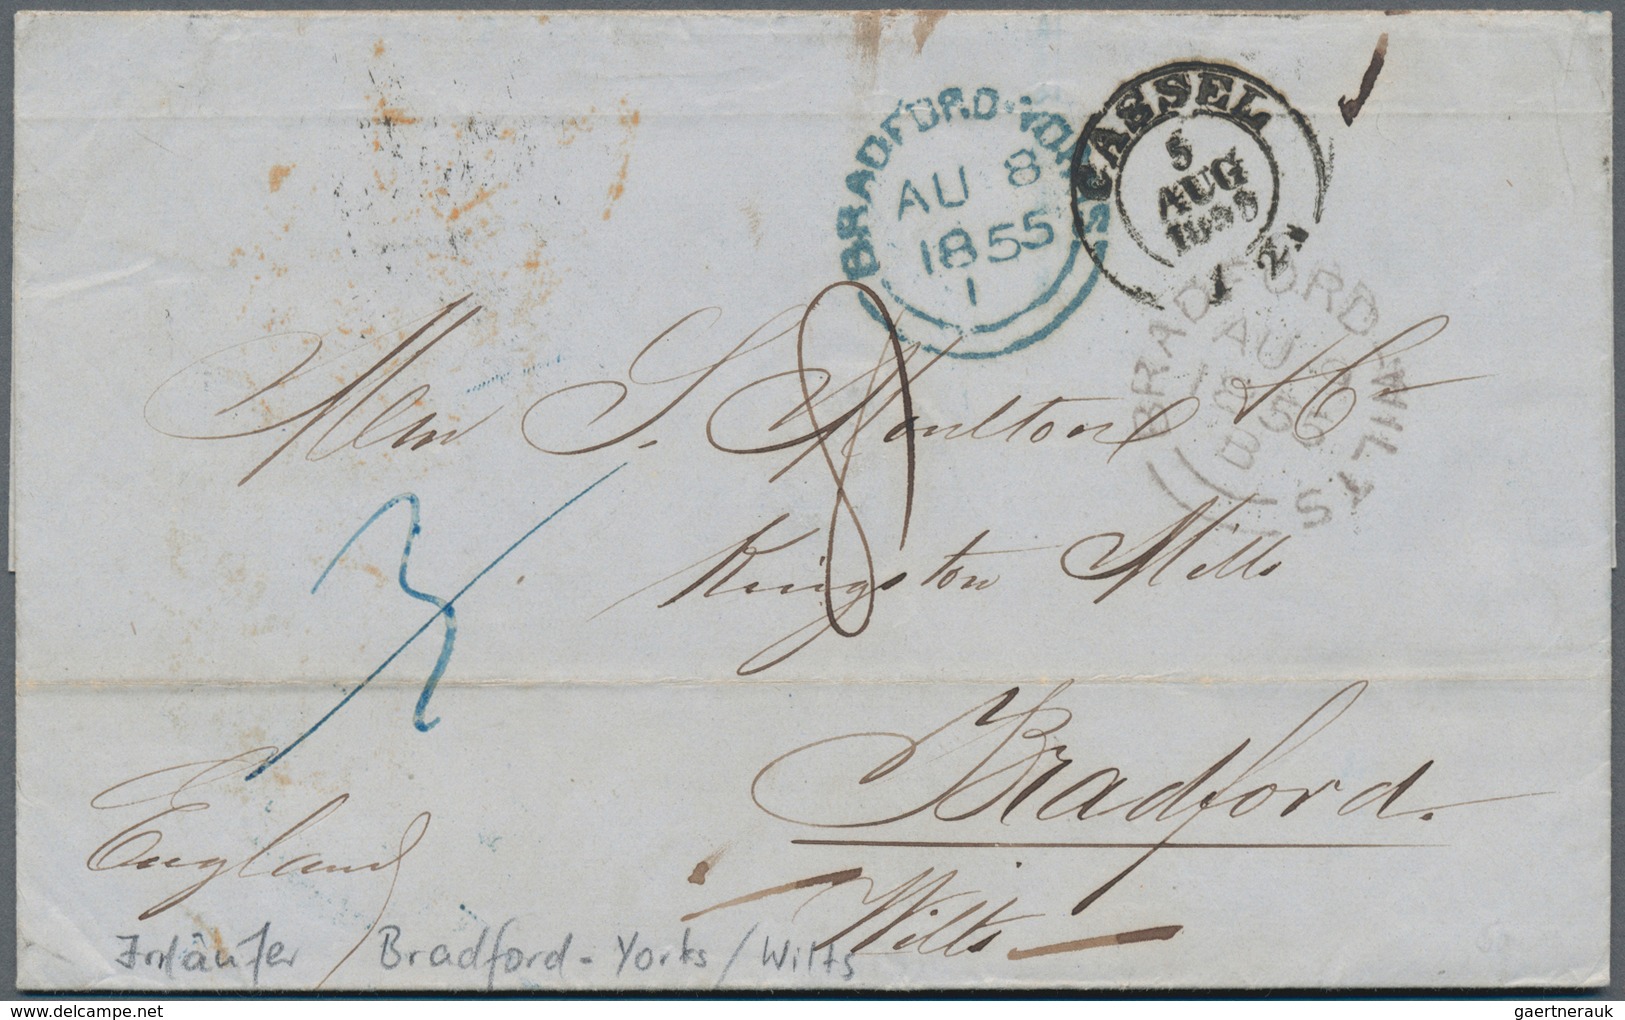 BRADFORD·YORKS
AU 8
1855
1
CASSEL
5
AUG
1855
BRADFORD-WILTS
AU 9
1855
B
8
S. Moulton & Co
Kingston Mills
3
Bradford.
England
Wilts
Irrläufer Bradford - Yorks / Wilts
gaertnerauk